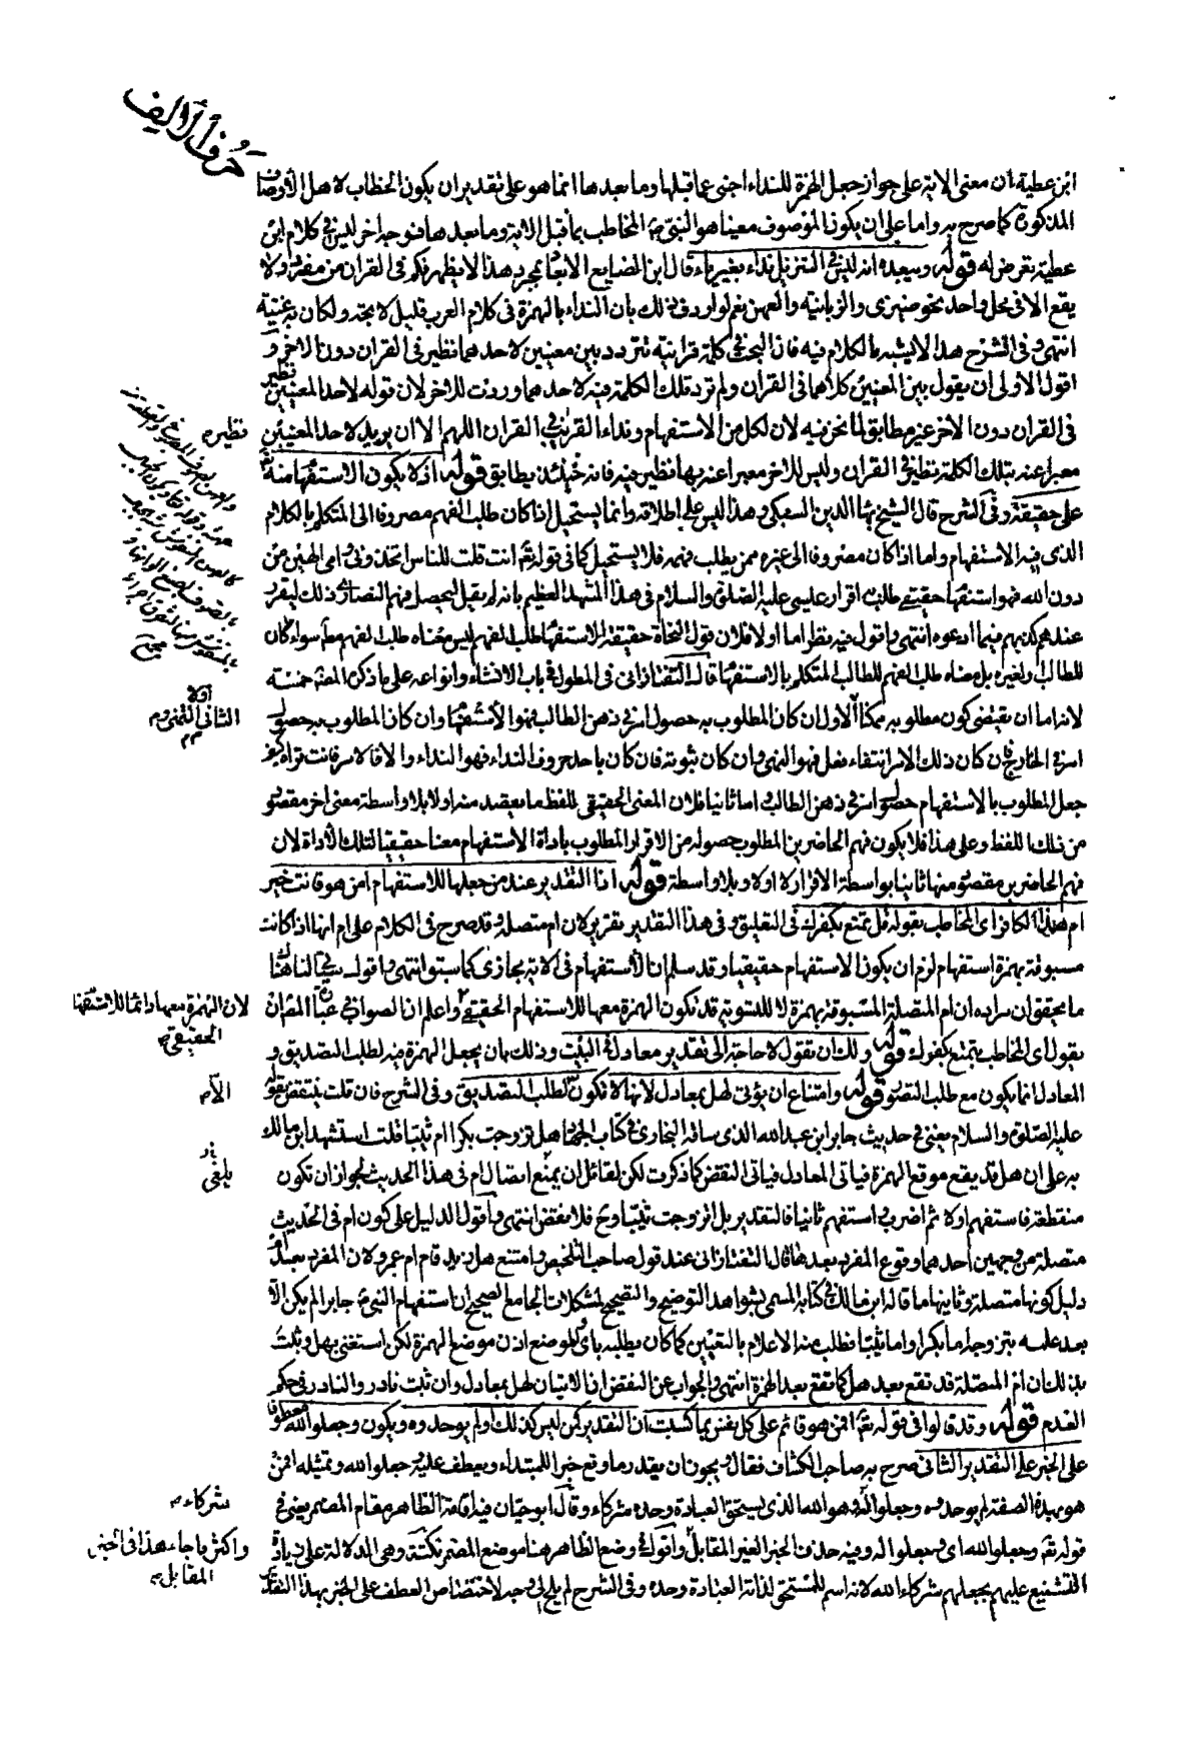 حرف الألف
ابن عطية ان معنى الاية على جواز جعل الهمزة للنداء اجنبى عما قبلها وما بعدها انما هو على تقدير ان يكون الخطاب لاهل الأوصاف
المذكورة كما صرح به واما على ان يكون الموصوف معينا هو النبى المخاطب بما قبل الاية وما بعدها فوجه اخر ليس فى كلام ابن
عطية تعرض له قوله ويبعده انه ليس فى التنزيل نداء بغير ياء قال ابن الصايغ الابعاد بمجرد هذا لا يظهر فكم فى القران من مفرد ولا
يقع الا فى محل واحد نحو ضيزى والزبانية والعهن نعم لو اردف ذلك بان النداء بالهمزة فى كلام العرب قليل لاتجه ولكان به غنية
انتهى وفى الشرح هذا لا يشبه ما الكلام فيه فان البحث فى كلمة قرانية تتردد بين معنيين لاحدهما نظير فى القران دون الاخر و
اقول الاولى ان يقول بين المعنيين كلاهما فى القران ولم ترد تلك الكلمة فيه لاحدهما ووردت للاخر لان قوله لاحد المعنيين نظير
فى القران دون الاخر غير مطابق لما نحن فيه لان لكل من الاستفهام ونداء القريب فى القران اللهم الا ان يريد لاحد المعنيين
معبرا عنه بتلك الكلمة نظير فى القران وليس للاخر معبرا عنه بها نظير فيه فانه حينئذ يطابق قوله اذ لا يكون الاستفهام منه تعالى
على حقيقته وفى الشرح قال الشيخ بهاء الدين السبكى وهذا ليس على اطلاقه وانما يستحيل اذا كان طلب الفهم مصروفا الى المتكلم بالكلام
الذى فيه الاستفهام واما اذا كان مصروفا الى غيره ممن يطلب فهمه فلا يستحيل كما فى قوله تع انت قلت للناس اتخذونى وامى الهين من
دون الله فهو استفهام حقيقى طلب به اقرار عيسى عليه الصلوة والسلام فى هذا المشهد العظيم بانه لم يقل ليحصل فهم النصارى ذلك ليقرر
عندهم كذبهم فيما ادعوه انتهى واقول فيه نظر اما اولا فلان قول النحاة حقيقة الاستفهام طلب الفهم ليس معناه طلب الفهم مط سواء كان
للطالب ولغيره بل معناه طلب الفهم للطالب المتكلم بالاستفهام قال التفتازانى فى المطول فى باب الانشاء وانواعه على ما ذكره المص خمسة
لانه اما ان يقتضى كون مطلوبه ممكنا الاول ان كان المطلوب به حصول امر فى ذهن الطالب فهو الاستفهام وان كان المطلوب به حصول
امر فى الخارج فان كان ذلك الامر انتفاء فعل فهو النهى وان كان ثبوته فان كان باحد حروف النداء فهو النداء والا فالامر فانت تراه كيف
جعل المطلوب بالاستفهام حصول امر فى ذهن الطالب واما ثانيا فلان المعنى الحقيقى للفظ ما يقصد منه اولا بلا واسطة معنى اخر مقصود
من ذلك اللفظ وعلى هذا فلا يكون فهم الحاضرين المطلوب حصوله من الاقرار المطلوب باداة الاستفهام معنا حقيقيا لتلك الاداة لان
فهم الحاضرين مقصود منها ثانيا بواسطة الاقرار لا اولا وبلا واسطة قوله اذا التقدير عند من جعلها للاستفهام امن هو قانت خير
ام هذا الكافر اى المخاطب بقوله قل تمتع بكفرك فى التعليق وفى هذا التقدير نقرير لان ام متصلة وقد صرح فى الكلام على ام انها اذا كانت
مسبوقة بهمزة استفهام لزم ان يكون الاستفهام حقيقيا وقد سلم ان الاستفهام فى الاية مجازى كما سبق انتهى واقول سيجئ لنا هناك
ما يحقق ان مراده ان ام المتصلة المسبوقة بهمزة لا للتسوية قد تكون الهمزة معها للاستفهام الحقيقى واعلم ان الصواب فى عبارة المص ان
لان الهمزة معها دائما للاستفهام
الحقيقى
يقول اى المخاطب بتمتع بكفرك قوله ولك ان تقول لا حاجة الى تقدير معادل فى البيت وذلك بان يجعل الهمزة فيه لطلب التصديق و
المعادل انما يكون مع طلب التصور قوله وامتناع ان يؤتى لهل بمعادل لانها لا تكون الا لطلب التصديق وفى الشرح فان قلت ينتقض بقوله
عليه الصلوة والسلام يعنى فى حديث جابر ابن عبدالله الذى ساقه البخارى فى كتاب الجهاد هل تزوجت بكرا ام ثيبا قلت استشهد ابن مالك
به على ان هل قد يقع موقع الهمزة فياتى المعادل فياتى النقض كما ذكرت لكن لقائل ان يمنع اتصال ام فى هذا الحديث لجواز ان تكون
منقطعة فاستفهم اولا ثم اضرب واستفهم ثانيا فالتقدير بل اتزوجت ثيبا وح فلا نقض انتهى واقول الدليل على كون ام فى الحديث
متصلة من وجهين احدهما وقوع المفرد بعدها قال التفتازانى عند قول صاحب التلخيص وامتنع هل زيد قام ام عمرو لان المفرد بعد ام
دليل كونها متصلة وثانيها ما قاله ابن مالك فى كتابه المسمى بشواهد التوضيح والتصحيح لمشكلات الجامع الصحيح ان استفهام النبى جابرا لم يكن الا
بعد علمه بتزوجه اما بكرا واما ثيبا فطلب منه الاعلام بالتعيين كما كان يطلبه باى فالموضع اذن موضع الهمزة لكن استغنى بهل وثبت
بذلك ان ام المتصلة قد تقع بعد هل كما تقع بعد الهمزة انتهى والجواب عن النقض ان الاتيان لهل بمعادل وان ثبت نادر والنادر فى حكم
العدم قوله وقد قالوا فى قوله تع افمن هو قائم على كل نفس بما كسبت ان التقدير كمن ليس كذلك او لم يوحدوه ويكون وجعلوا لله معطوفا
على الخبر على التقدير الثانى صرح به صاحب الكشاف فقال ويجوز ان يقدر ما وقع خبرا للمبتداء ويعطف عليه وجعلوا لله وتمثيله افمن
هو بهذه الصفة لم يوحدوه وجعلوا له وهو الله الذى يستحق العبادة وحده شركاء وقال ابو حيان فيه اقامة الظاهر مقام المضمر يعنى فى
شركاء
قوله تع وجعلوا لله اى وجعلوا له وفيه حذف الخبر الغير المقابل واقول فى وضع الظاهر هنا موضع المضمر نكتة وهى الدلالة على زيادة
واكثر ما جاء هذا فى الخبر
المقابل
التشنيع عليهم بجعلهم شركاء لله لانه اسم للمستحق لذاته العبادة وحده وفى الشرح لم يلح لى وجه لاختصاص العطف على الخبر بهذا التقدير